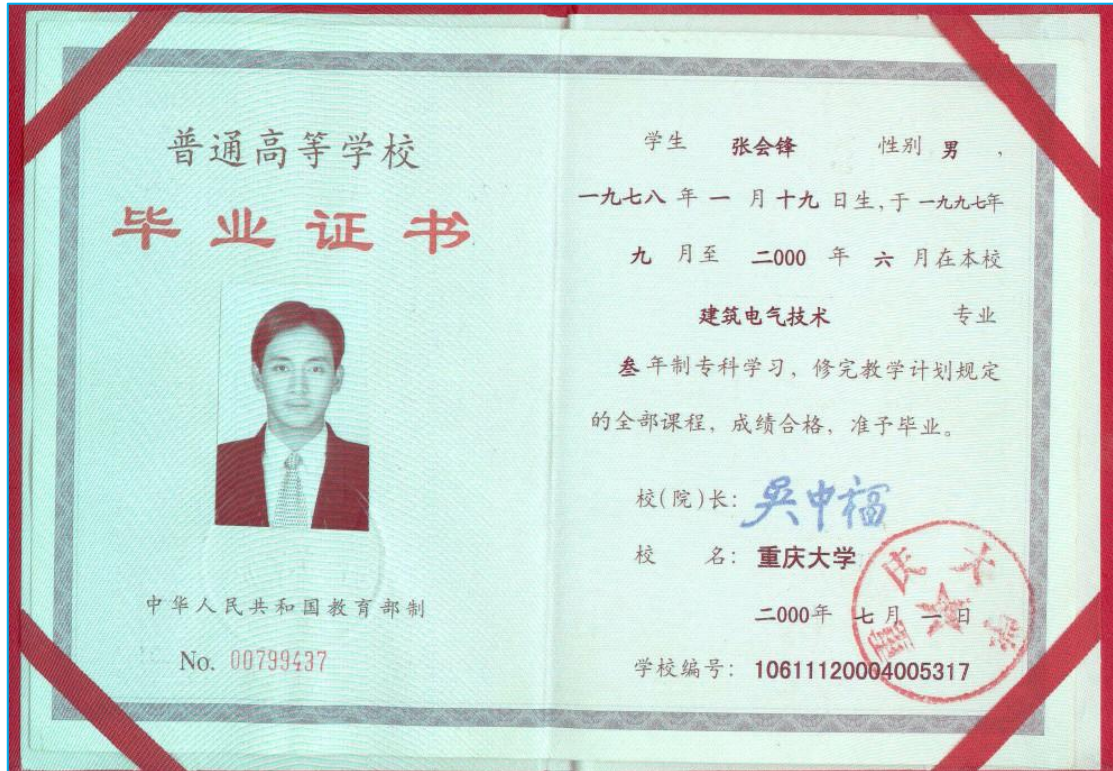 普通高等学校
毕业证书
中华人民共和国教育部制
No. 00799437
学生 张会锋 性别 男 ,
一九七八 年 一 月 十九 日生,于 一九九七年
九 月至 二000 年 六 月在本校
建筑电气技术 专业
叁 年制专科学习，修完教学计划规定
的全部课程，成绩合格，准予毕业。
校(院)长: 吴中福
校 名: 重庆大学
二000年 七 月 一 日
学校编号: 10611120004005317
重庆大学